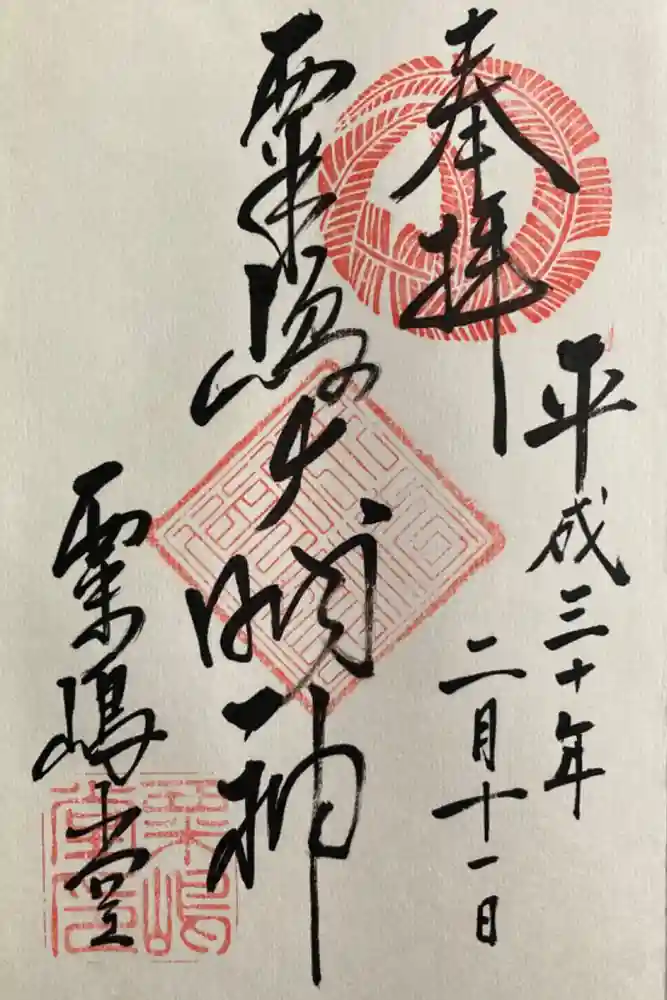 奉拝
平成三十年
二月十一日
粟嶋大明神
粟嶋堂
粟嶋堂印